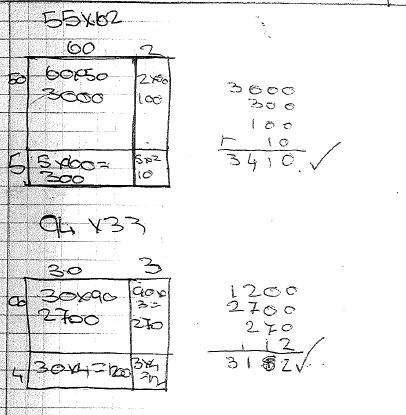 55x62
60 2
50 60x50 2x50
3000 100
5 5x60= 5x2
300 10
3000
300
100
+ 10
3410.
94 x33
30 3
90 30x90 90x
2700 3=
270
4 30x4=1200 3x4
=12
1200
2700
270
112
3182